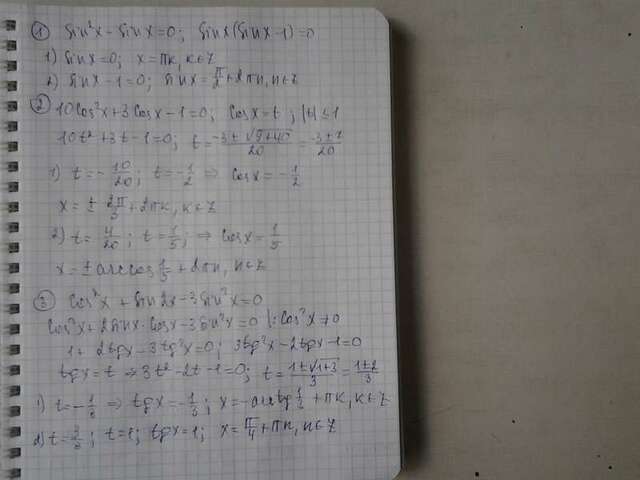 ① sin²x - sin x = 0; sin x (sin x - 1) = 0
1) sin x = 0; x = πk, k∈Z
2) sin x - 1 = 0; sin x = π/2 + 2πn, n∈Z
② 10cos²x + 3cos x - 1 = 0; cos x = t; |t| ≤ 1
10t² + 3t - 1 = 0; t = (-3 ± √(9+40))/20 = (-3 ± 7)/20
1) t = -10/20; t = -1/2 ⇒ cos x = -1/2
x = ± 2π/3 + 2πk, k∈Z
2) t = 4/20; t = 1/5; ⇒ cos x = 1/5
x = ± arccos 1/5 + 2πn, n∈Z
③ cos²x + sin 2x - 3sin²x = 0
cos²x + 2sin x · cos x - 3sin²x = 0 |: cos²x ≠ 0
1 + 2tg x - 3tg²x = 0; 3tg²x - 2tg x - 1 = 0
tg x = t ⇒ 3t² - 2t - 1 = 0; t = (1 ± √(1+3))/3 = (1 ± 2)/3
1) t = -1/3 ⇒ tg x = -1/3; x = -arctg 1/3 + πk, k∈Z
2) t = 3/3; t = 1; tg x = 1; x = π/4 + πn, n∈Z